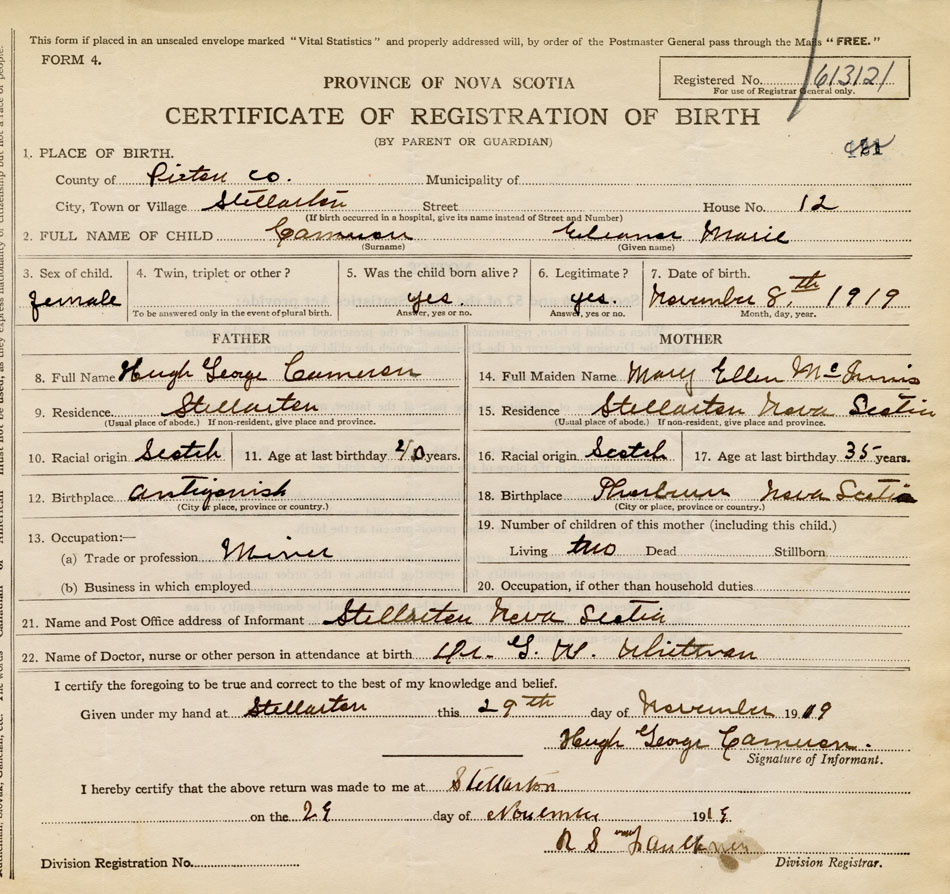 This form if placed in an unsealed envelope marked "Vital Statistics" and properly addressed will, by order of the Postmaster General pass through the Mails "FREE."
FORM 4.
Registered No. 613121
For use of Registrar General only.
PROVINCE OF NOVA SCOTIA
CERTIFICATE OF REGISTRATION OF BIRTH
(BY PARENT OR GUARDIAN)
1. PLACE OF BIRTH.
County of Pictou Co. Municipality of
City, Town or Village Stellarton Street House No. 12
(If birth occurred in a hospital, give its name instead of Street and Number)
2. FULL NAME OF CHILD Cameron Eleanor Marie
(Surname) (Given name)
3. Sex of child. 4. Twin, triplet or other? 5. Was the child born alive? 6. Legitimate? 7. Date of birth.
female yes. yes. November 8,th 1919
To be answered only in the event of plural birth. Answer, yes or no. Answer, yes or no. Month, day, year.
FATHER MOTHER
8. Full Name Hugh George Cameron 14. Full Maiden Name Mary Ellen McInnis
9. Residence. Stellarton 15. Residence Stellarton Nova Scotia
(Usual place of abode.) If non-resident, give place and province. (Usual place of abode.) If non-resident, give place and province.
10. Racial origin Scotch 11. Age at last birthday years. 16. Racial origin Scotch 17. Age at last birthday 35 years.
12. Birthplace Antigonish 18. Birthplace Thorburn Nova Scotia
(City or place, province or country.) (City or place, province or country.)
19. Number of children of this mother (including this child.)
13. Occupation:—
(a) Trade or profession Miner Living two Dead Stillborn
(b) Business in which employed 20. Occupation, if other than household duties
21. Name and Post Office address of Informant Stellarton Nova Scotia
22. Name of Doctor, nurse or other person in attendance at birth Dr. G. W. Whitman
I certify the foregoing to be true and correct to the best of my knowledge and belief.
Given under my hand at Stellarton this 29th day of November 1919
Hugh George Cameron.
Signature of Informant.
I hereby certify that the above return was made to me at Stellarton
on the 29 day of November 1919
R S Faulkner
Division Registration No. Division Registrar.